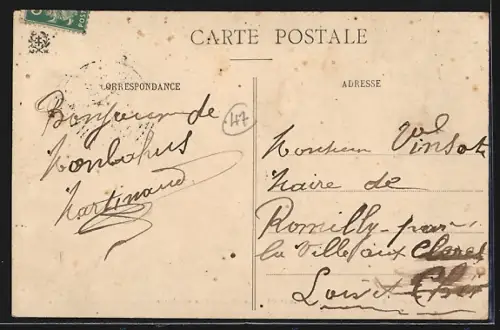 CARTE POSTALE
CORRESPONDANCE
ADRESSE
Bonjour de
Monbahus
Martinaud
47
Monsieur Vinsot
Maire de
Romilly par
la Ville aux Clercs
Loir et Cher